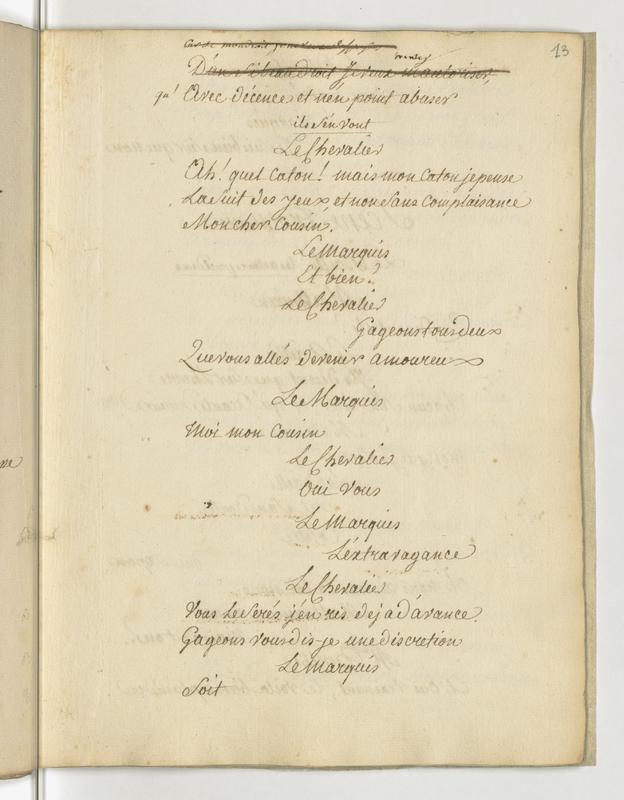 13
D'un si beau droit je veux m'autoriser,
qu' Avec décence et n'en point abuser
ils s'en vont
Le Chevalier
Ah! quel Caton! mais mon Caton je pense
La suit des yeux et non sans complaisance
Mon cher Cousin.
Le Marquis
Et bien?
Le Chevalier
Gageons tous deux
Que vous allés devenir amoureux
Le Marquis
Moi mon Cousin
Le Chevalier
Oui Vous
Le Marquis
L'éxtravagance
Le Chevalier
Vous le serés j'en ris deja d'avance.
Gageons vous dis-je une discretion
Le Marquis
Soit